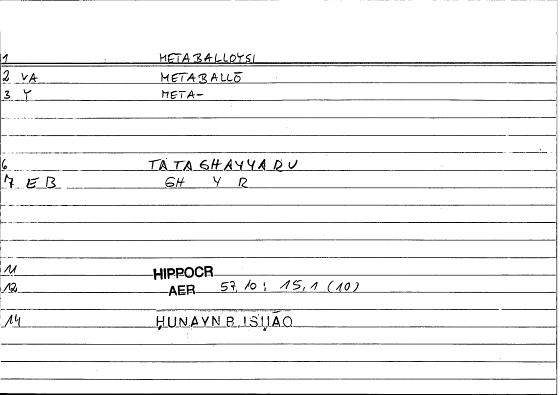 1 METABALLOYSI
2 VA METABALLŌ
3 Y META-
6 TATAGHAYYARU
7 EB GH Y R
11 HIPPOCR
12 AER 57,10: 15,1 (10)
14 ḤUNAYN B. ISḤĀQ